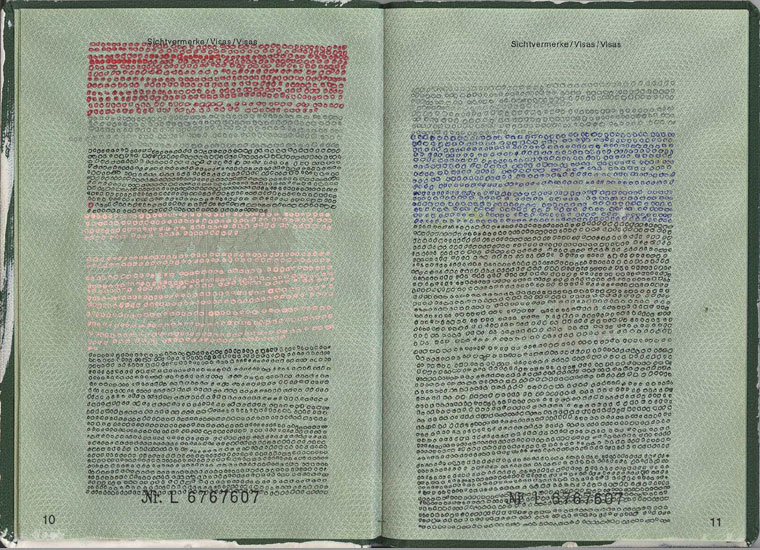 Sichtvermerke/Visas/Visas
Nr. L 6767607
10
Sichtvermerke/Visas/Visas
Nr. L 6767607
11